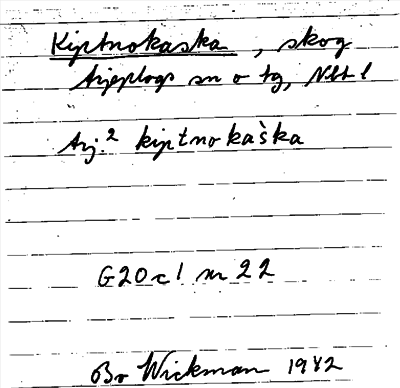 Kiptnokaska, skog
Arjeplogs sn o tg, Nbt l
Arj.² kiptnokaška
G20c1 nr 22
Bo Wickman 1942